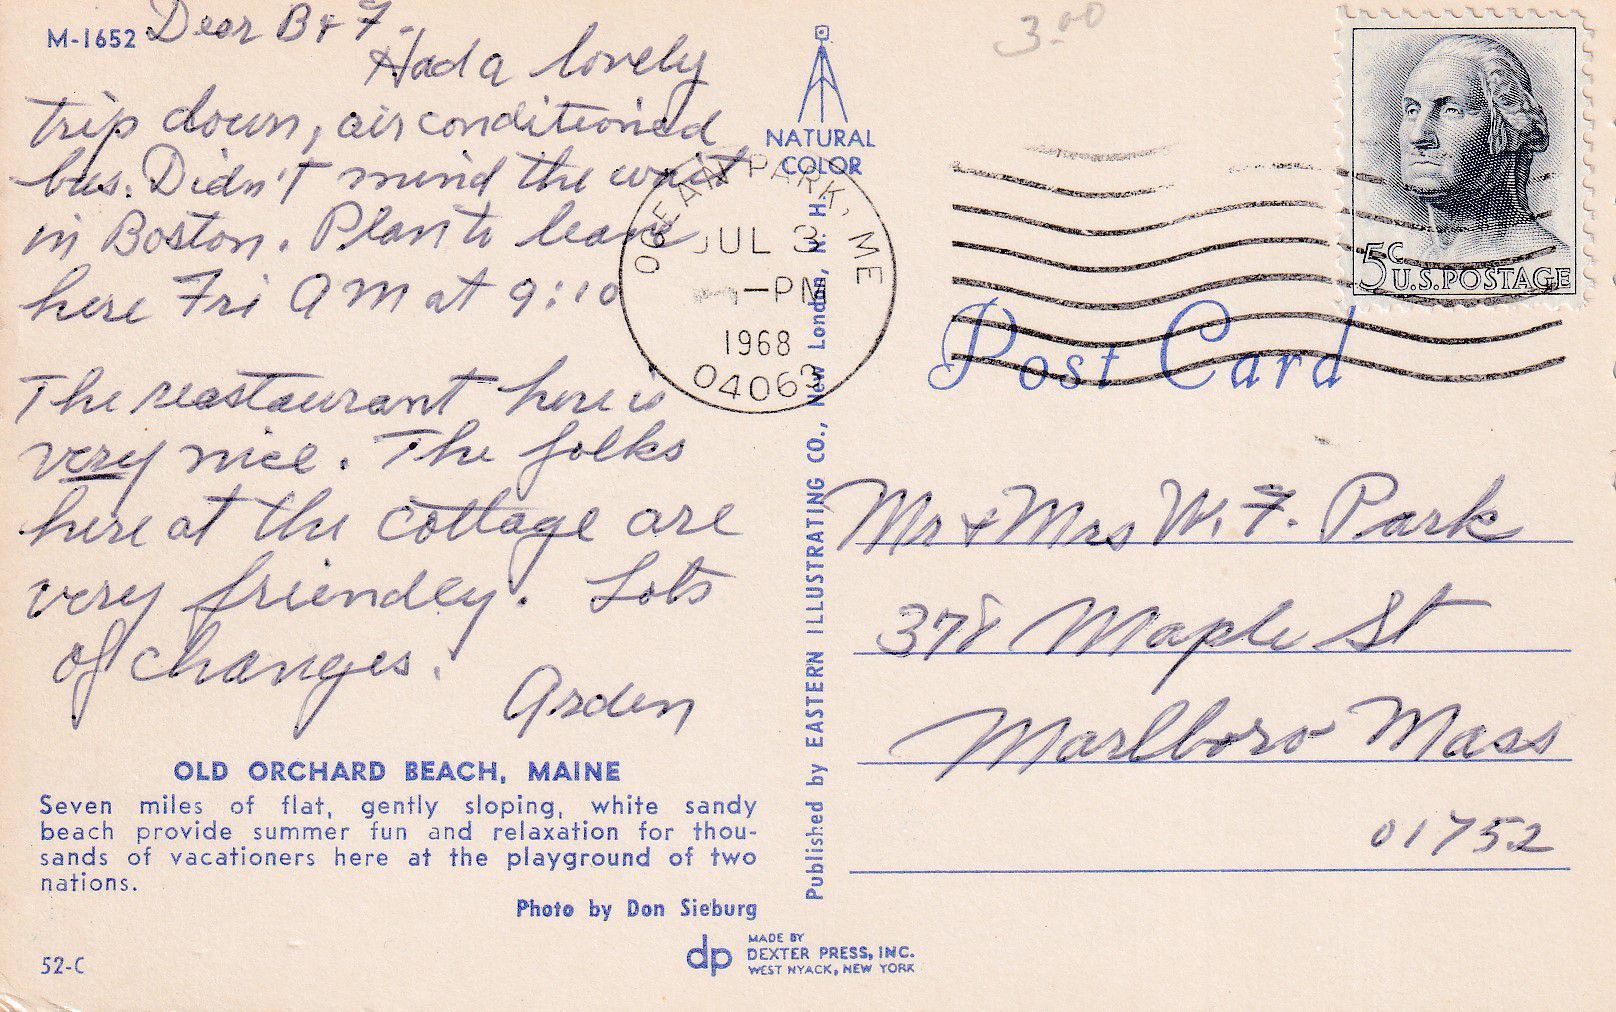 M-1652
Dear B & F.
Had a lovely
trip down, air conditioned
bus. Didn't mind the wait
in Boston. Plan to leave
here Fri AM at 9:10
The reastaurant here is
very nice. The folks
here at the cottage are
very friendly. Lots
of changes.
Arden
OLD ORCHARD BEACH, MAINE
Seven miles of flat, gently sloping, white sandy
beach provide summer fun and relaxation for thou-
sands of vacationers here at the playground of two
nations.
Photo by Don Sieburg
52-C
dp
MADE BY
DEXTER PRESS, INC.
WEST NYACK, NEW YORK
NATURAL
COLOR
Published by EASTERN ILLUSTRATING CO., New London, N. H.
OCEAN PARK, ME
JUL 3
-PM
1968
04063
3.00
5c
U.S. POSTAGE
Post Card
Mr & Mrs W. F. Park
378 Maple St
Marlboro Mass
01752